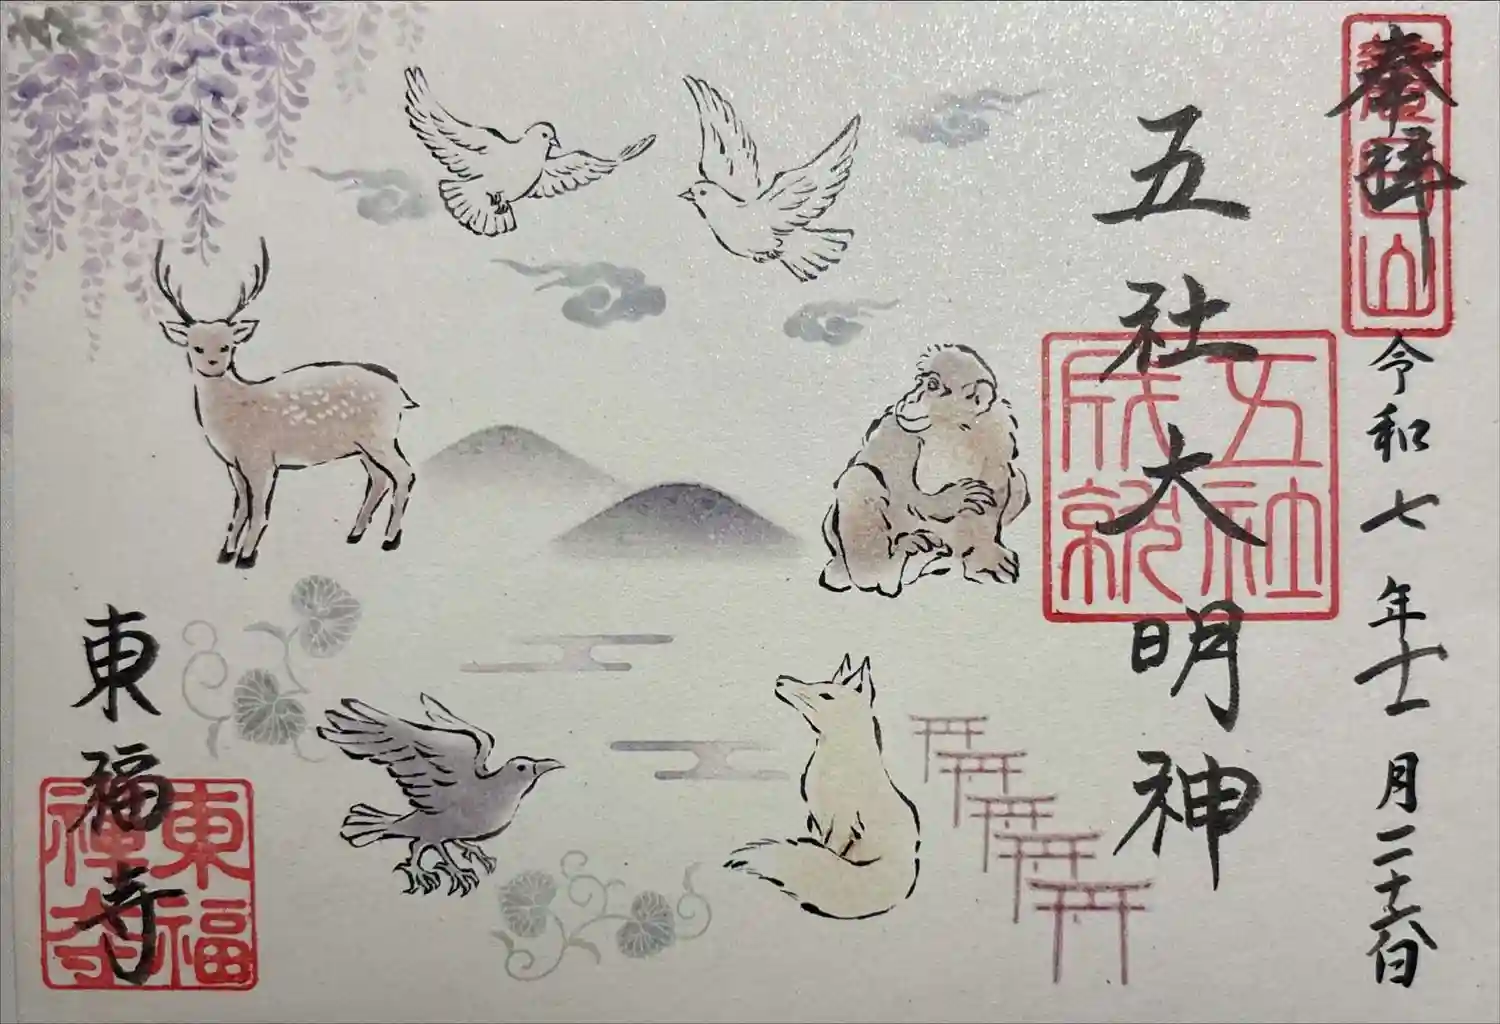 奉拝
慧日山
令和七年十一月二十六日
五社大明神
五社
成就
東福寺
東福
禅寺